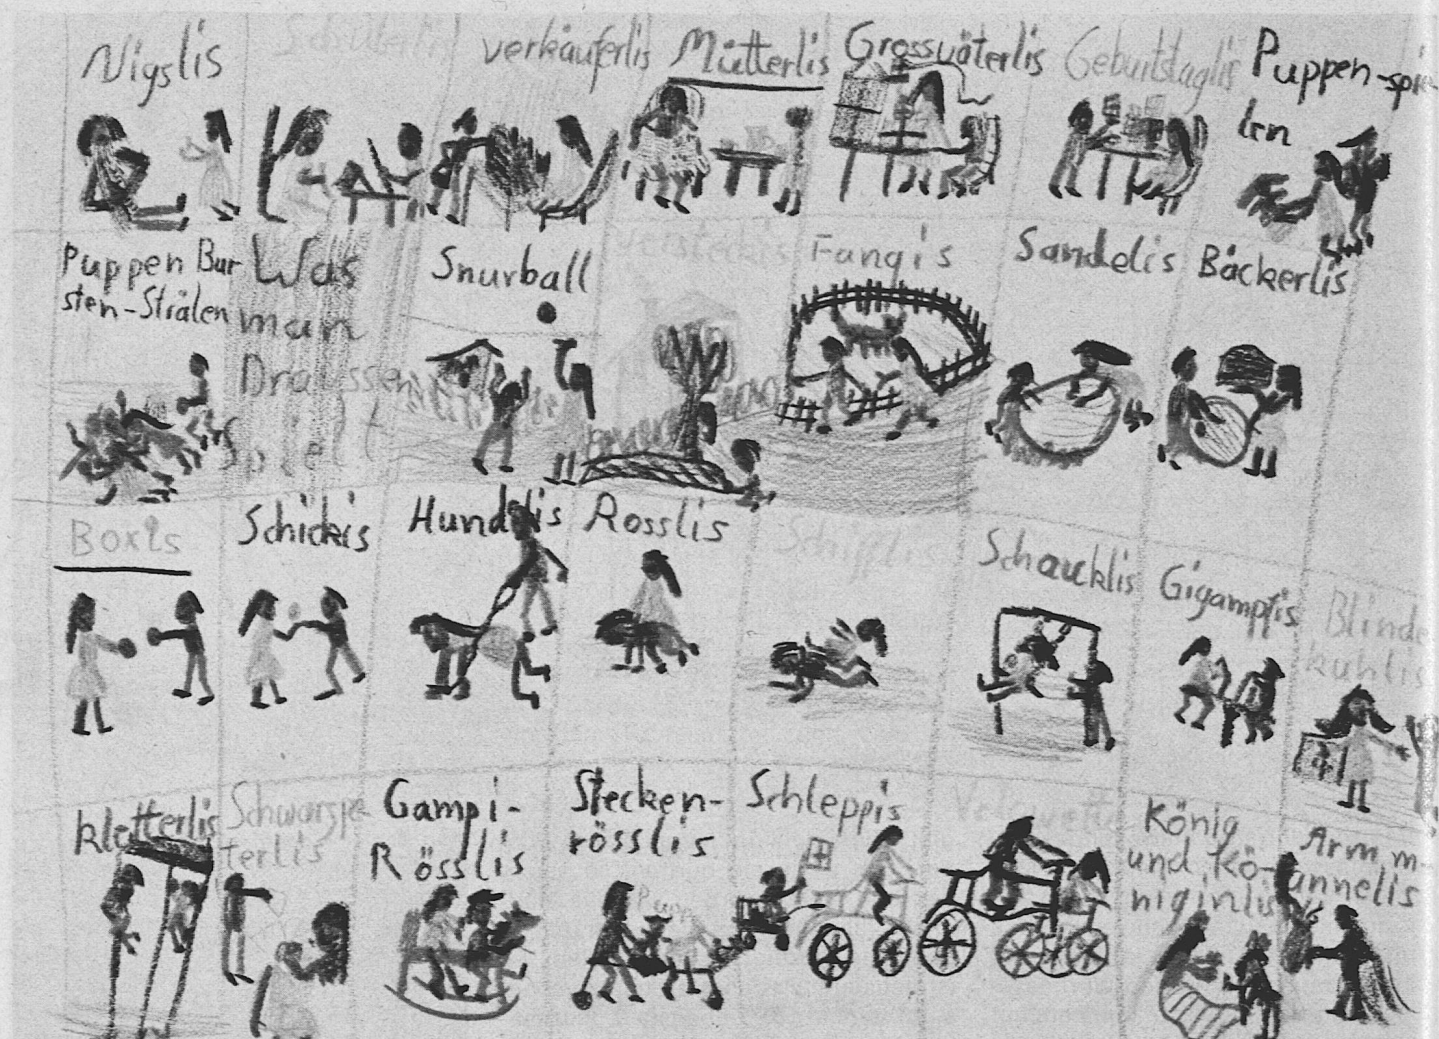 Nigslis
Schülerlis
verkäuferlis
Mütterlis
Grossväterlis
Geburtstaglis
Puppen-spie-
len
Puppen Bür
sten-Strälen
Was
man
Draussen
Spielt
Snurball
versteckis
Fangis
Sandelis
Bäckerlis
Boxis
Schickis
Hundelis
Rosslis
Schifflis
Schaucklis
Gigampfis
Blinde
kuhlis
kletterlis
Schwarzpe-
terlis
Gampi-
Rösslis
Stecken-
rösslis
Schleppis
König
und Kö-
niginlis
Arm m-
annelis